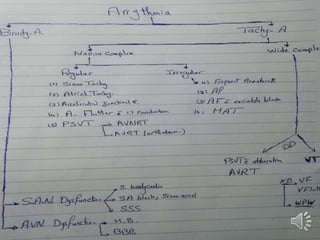 Arrythmia
Brady. A.
Tachy-A
Narrow Complex
Wide Comple
Regular
Irregular
(1) Sinus Tachy
(2) Atrial Tachy.
(3) Accelerated Junctional
(4) A. Flutter
(5) PSVT
AVNRT
AVRT (orthodromic)
(1) Frequent
(2) AF
(3) AF & variable block
(4) MAT
DD
PSVT & abberation
AVRT
VT
NB. VF
WPW
S.A.N. Dysfunction
S. bradycardia
SA block, Sinus arrest
SSS
A.V.N. Dysfunction
H.B.
BBB